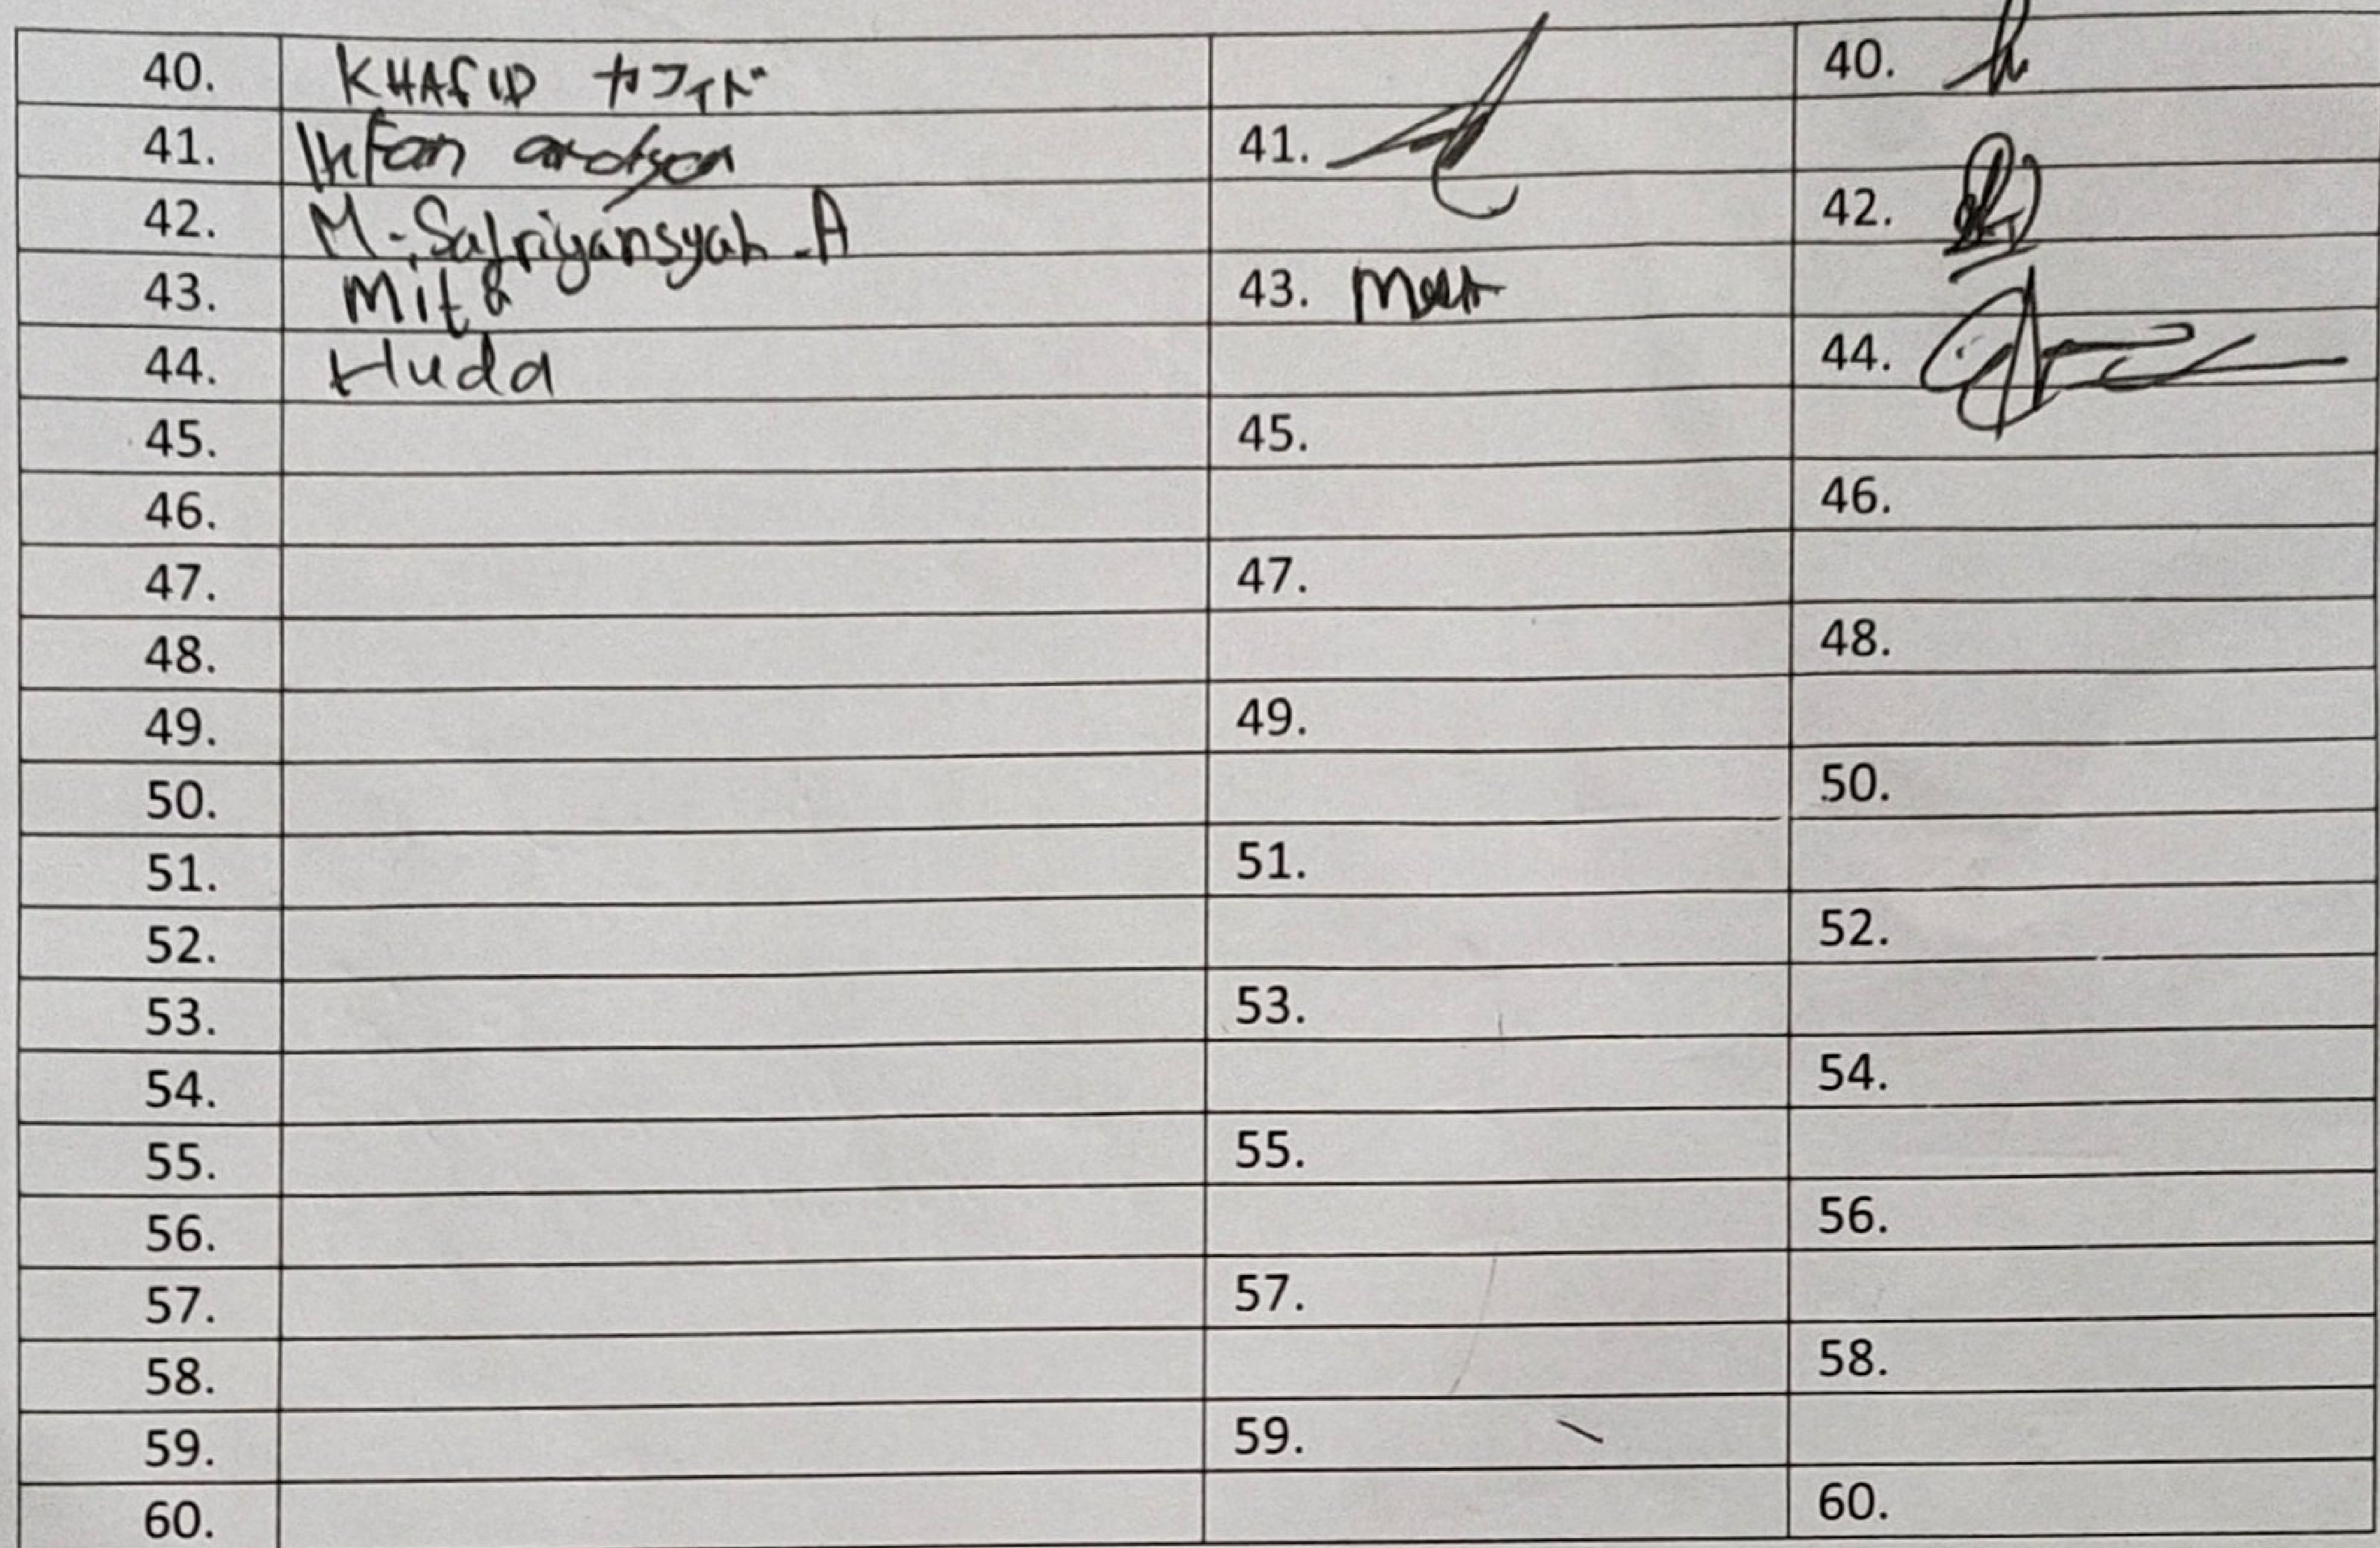 40. KHAFID カフィド 40.
41. Irfan ardsya 41.
42. M. Safriyansyah .A 42.
43. Mita 43.
44. Huda 44.
45. 45.
46. 46.
47. 47.
48. 48.
49. 49.
50. 50.
51. 51.
52. 52.
53. 53.
54. 54.
55. 55.
56. 56.
57. 57.
58. 58.
59. 59.
60. 60.